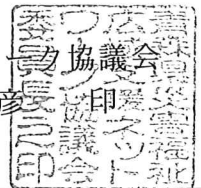 ーク協議会
彦　印
青森県災害福祉
広域支援ネット
ワーク協議会
委員長之印